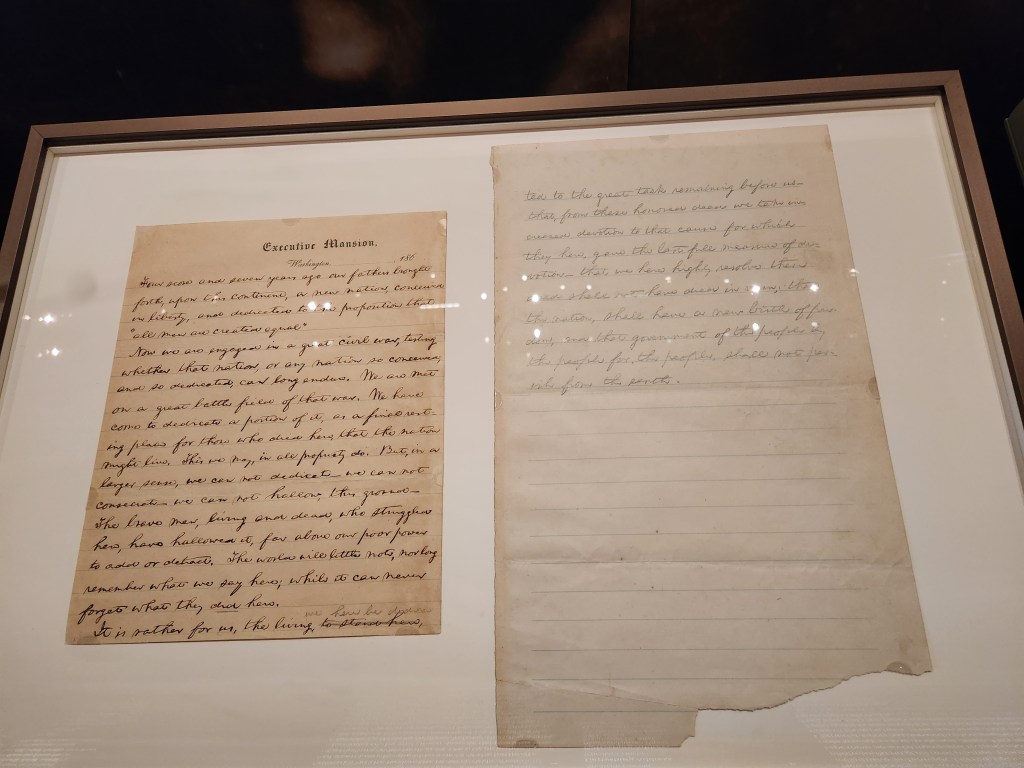 Executive Mansion,
Washington, 186
Four score and seven years ago our fathers brought
forth, upon this continent, a new nation, conceived
in liberty, and dedicated to the proposition that
"all men are created equal"
Now we are engaged in a great civil war, testing
whether that nation, or any nation so conceived,
and so dedicated, can long endure. We are met
on a great battle field of that war. We have
come to dedicate a portion of it, as a final rest-
ing place for those who died here, that the nation
might live. This we may, in all propriety do. But, in a
larger sense, we can not dedicate — we can not
consecrate — we can not hallow, this ground —
The brave men, living and dead, who struggled
here, have hallowed it, far above our poor power
to add or detract. The world will little note, nor long
remember what we say here; while it can never
forget what they did here.
we here be dedica-
It is rather for us, the living, to stand here,
ted to the great task remaining before us —
that, from these honored dead we take in-
creased devotion to that cause for which
they here, gave the last full measure of de-
votion — that we here highly resolve these
dead shall not have died in vain; that
the nation, shall have a new birth of free-
dom, and that government of the people by
the people for the people, shall not per-
ish from the earth.